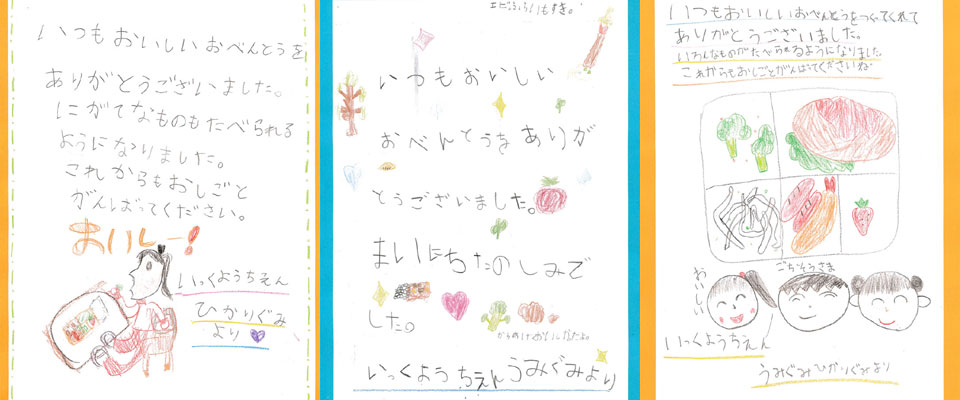 いつもおいしいおべんとうを
ありがとうございました。
にがてなものもたべられる
ようになりました。
これからもおしごと
がんばってください。
おいしー!
いっくようちえん
ひかりぐみ
より
いつもおいしい
おべんとうをありが
とうございました。
まいにちたのしみで
した。
いっくようちえんうみぐみより
いつもおいしいおべんとうをつくってくれて
ありがとうございました。
いろんなものがたべられるようになりました
これからもおしごとがんばってくださいね
おいしい
ごちそうさま
いっくようちえん
うみぐみひかりぐみより